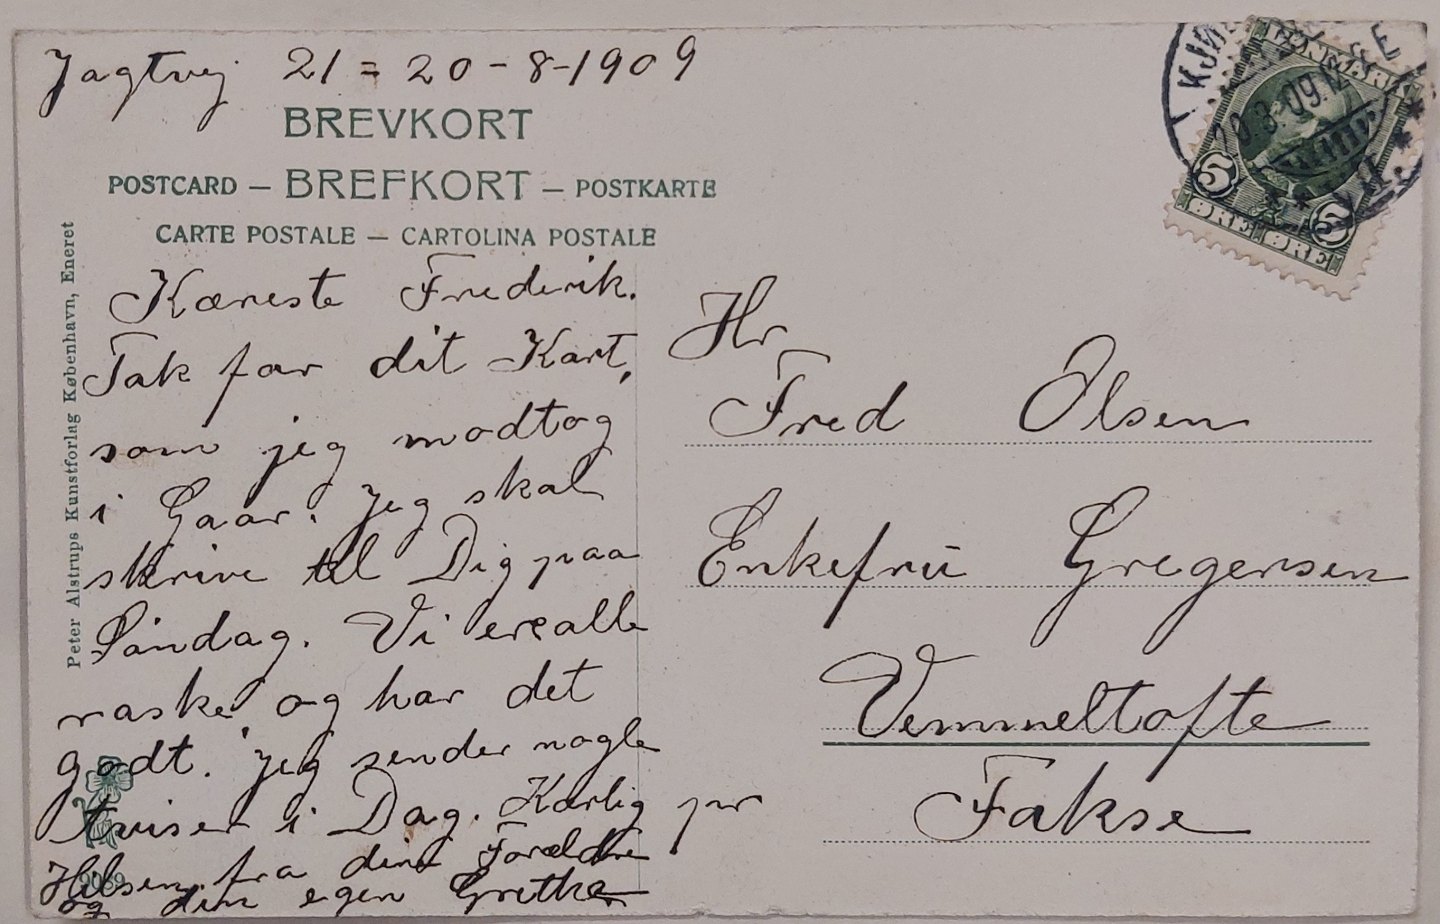 Jagtvej 21 = 20-8-1909
BREVKORT
POSTCARD — BREFKORT — POSTKARTE
CARTE POSTALE — CARTOLINA POSTALE
Peter Alstrups Kunstforlag København, Eneret
Kæreste Frederik.
Tak for dit Kort,
som jeg modtog
i Gaar. Jeg skal
skrive til Dig paa
Søndag. Vi ere alle
raske, og har det
godt. Jeg sender nogle
Aviser i Dag. Kærlig
Hilsen fra dine Forældre
og din egen Grethe
9089
DANMARK
5 5
ØRE ØRE
Hr
Fred Olsen
Enkefru Gregersen
Vemmeltofte
pr Fakse